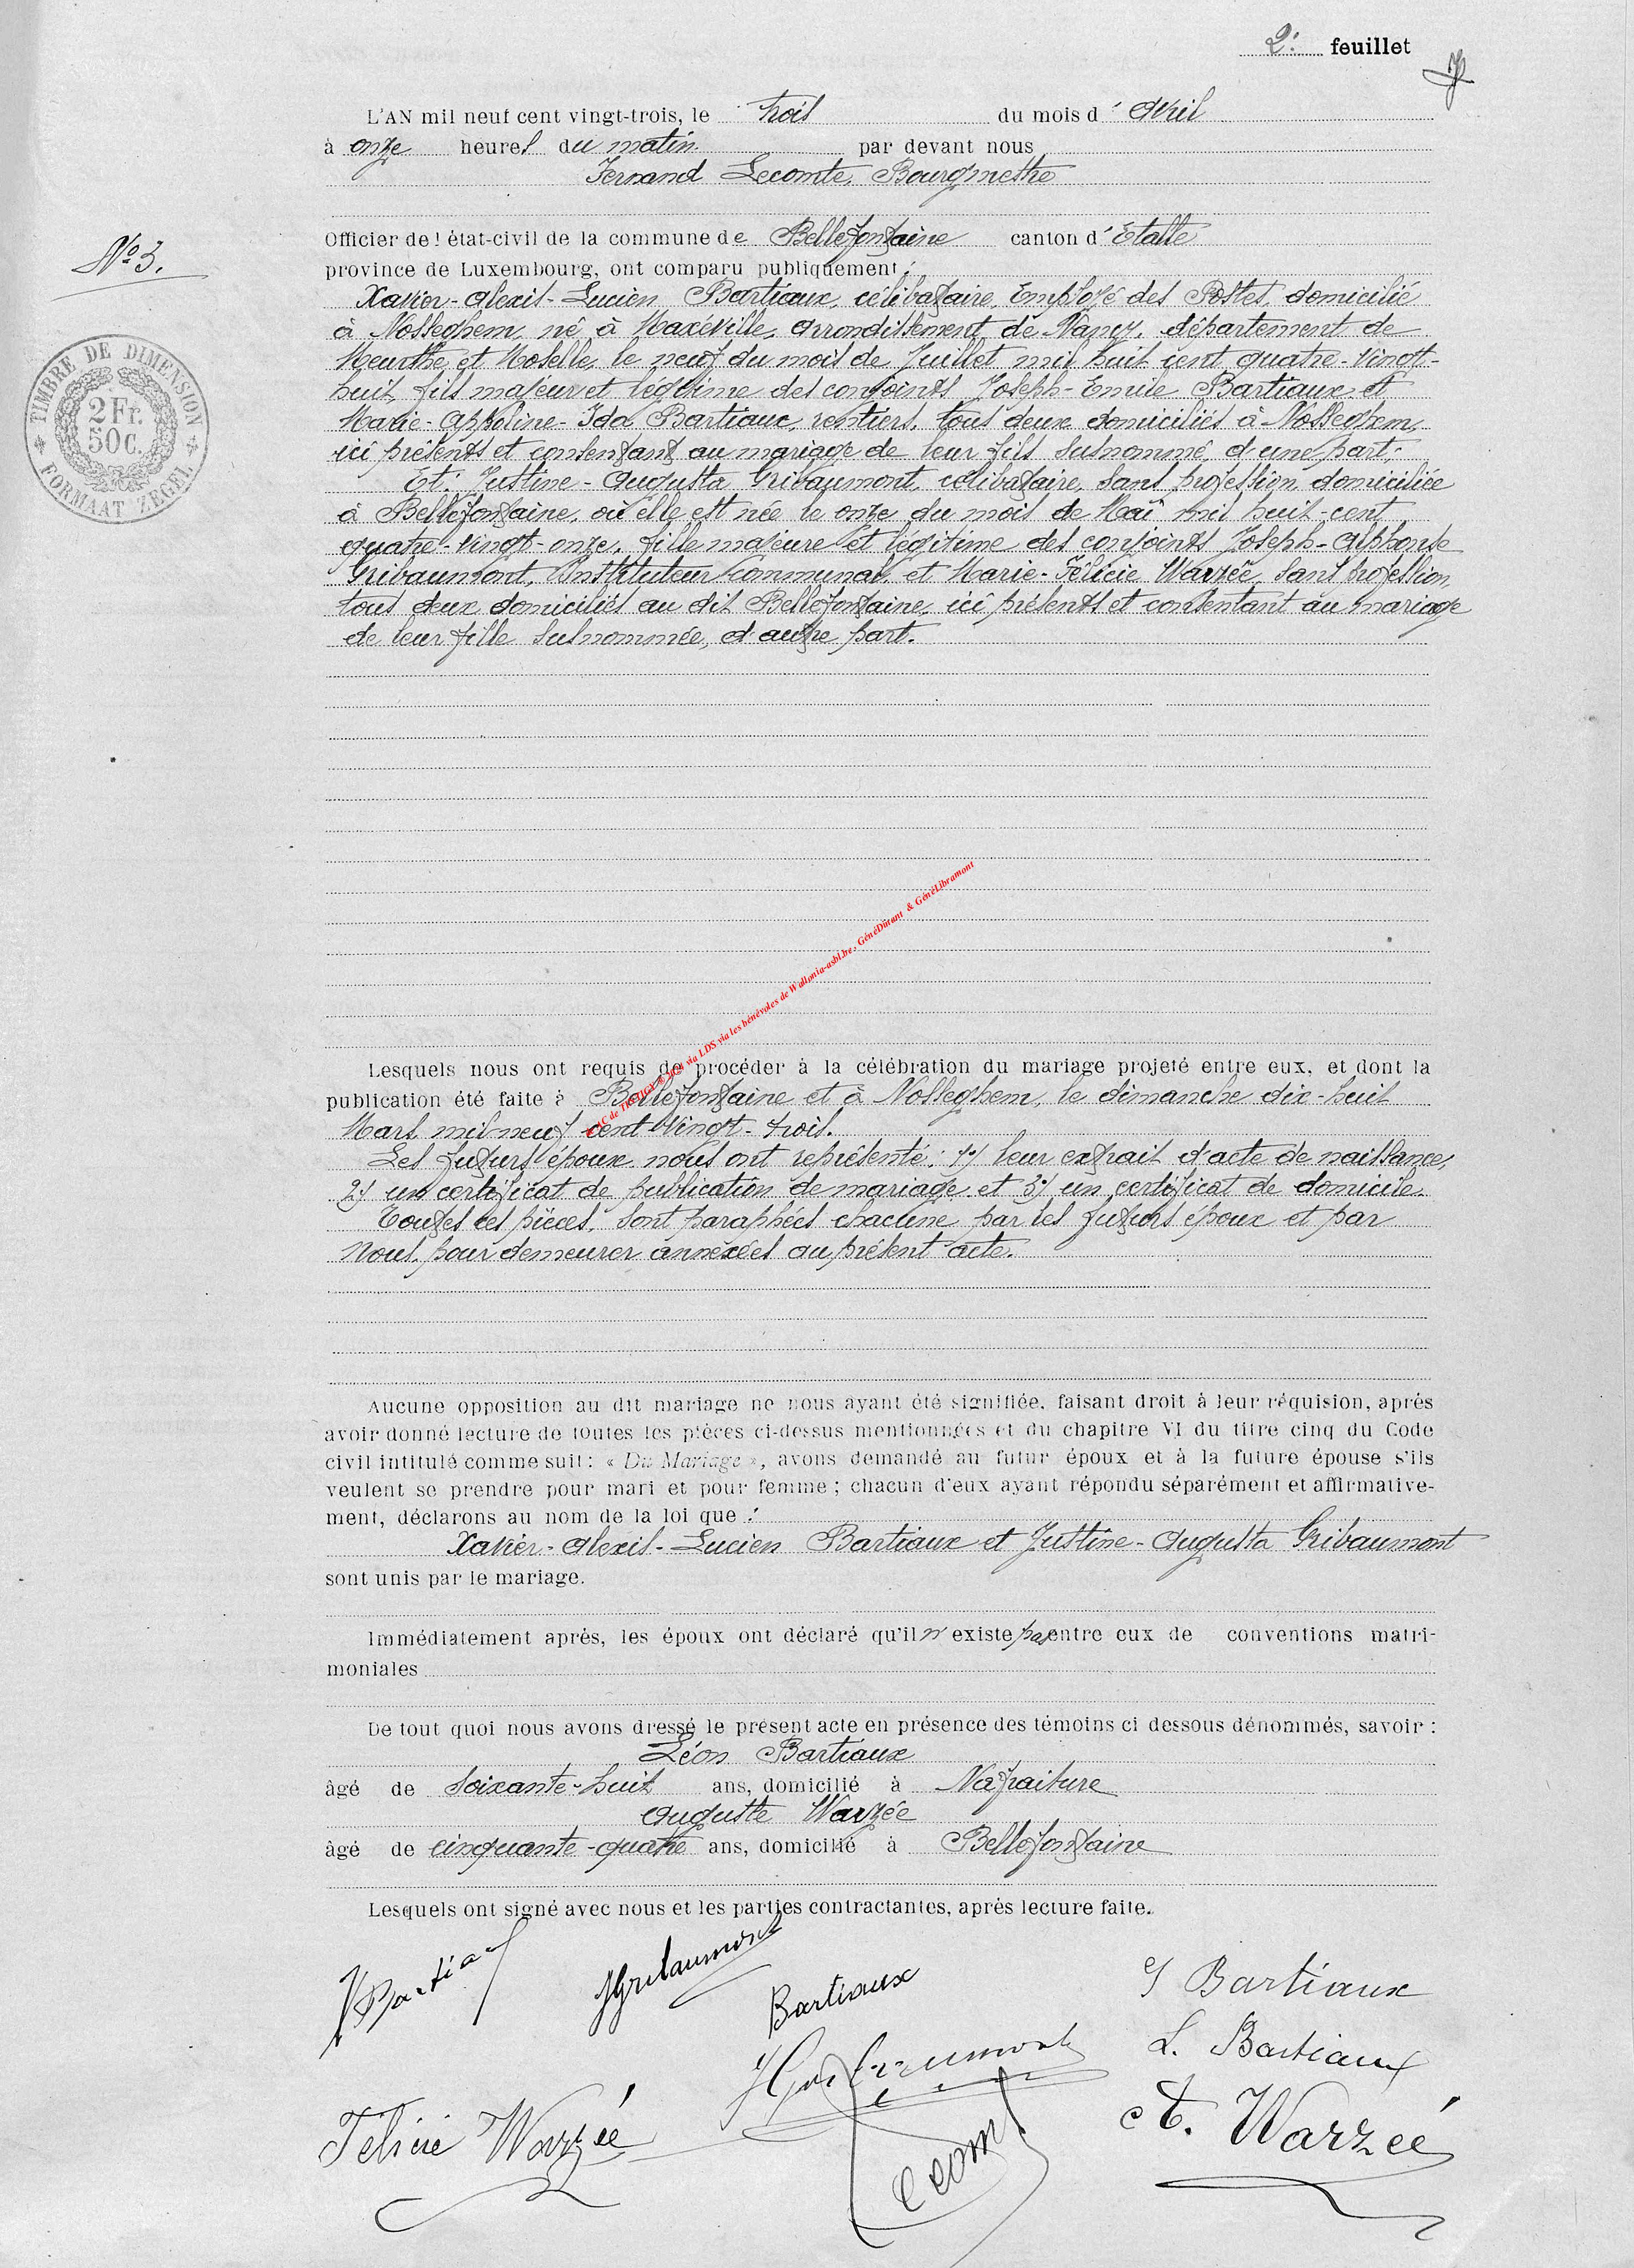 2e feuillet
L'AN mil neuf cent vingt-trois, le trois du mois d'Avril
à onze heures du matin par devant nous
Fernand Lecomte, Bourgmestre
Officier de l'état-civil de la commune de Bellefontaine canton d'Etalle
N° 3.
province de Luxembourg, ont comparu publiquement :
Xavier-Alexis-Lucien Bartiaux, célibataire, Employé des Postes, domicilié
à Nosseghem, né à Maxéville, arrondissement de Nancy, département de
Meurthe et Moselle, le neuf du mois de Juillet mil huit cent quatre-vingt-
huit, fils majeur et légitime des conjoints Joseph-Emile Bartiaux et
Marie-Appoline-Ida Bartiaux, rentiers, tous deux domiciliés à Nosseghem,
ici présents et consentant au mariage de leur fils susnommé, d'une part;
Et: Justine-Augusta Gribaumont, célibataire, sans profession, domiciliée
à Bellefontaine, où elle est née le onze du mois de Mai mil huit-cent
quatre-vingt-onze, fille majeure et légitime des conjoints Joseph-Alphonse
Gribaumont, Instituteur communal, et Marie-Félicie Warzée, sans profession,
tous deux domiciliés au dit Bellefontaine, ici présents et consentant au mariage
de leur fille susnommée, d'autre part.
TIMBRE DE DIMENSION
2Fr.
50c.
FORMAAT ZEGEL
via LDS via les bénévoles de Wallonia-asbl.be, GénéDinant & GénéLibramont
Lesquels nous ont requis de procéder à la célébration du mariage projeté entre eux, et dont la
publication été faite à Bellefontaine et à Nosseghem, le dimanche dix-huit
Mars mil neuf cent vingt-trois.
Les futurs époux nous ont représenté: 1°/ leur extrait d'acte de naissance,
2°/ un certificat de publication de mariage et 3°/ un certificat de domicile.
Toutes ces pièces, sont paraphées chacune par les futurs époux et par
Nous, pour demeurer annexées au présent acte.
Aucune opposition au dit mariage ne nous ayant été signifiée, faisant droit à leur réquision, après
avoir donné lecture de toutes les pièces ci-dessus mentionnées et du chapitre VI du titre cinq du Code
civil intitulé comme suit : « Du Mariage », avons demandé au futur époux et à la future épouse s'ils
veulent se prendre pour mari et pour femme ; chacun d'eux ayant répondu séparément et affirmative-
ment, déclarons au nom de la loi que :
Xavier-Alexis-Lucien Bartiaux et Justine-Augusta Gribaumont
sont unis par le mariage.
Immédiatement après, les époux ont déclaré qu'il n'existe pas entre eux de conventions matri-
moniales
De tout quoi nous avons dressé le présent acte en présence des témoins ci dessous dénommés, savoir :
Léon Bartiaux
âgé de soixante-huit ans, domicilié à Nafraiture
Auguste Warzée
âgé de cinquante-quatre ans, domicilié à Bellefontaine
Lesquels ont signé avec nous et les parties contractantes, après lecture faite.
JGribaumont
Bartiaux
J Bartiaux
L. Bartiaux
JGribaumont
Félicie Warzée
A. Warzée